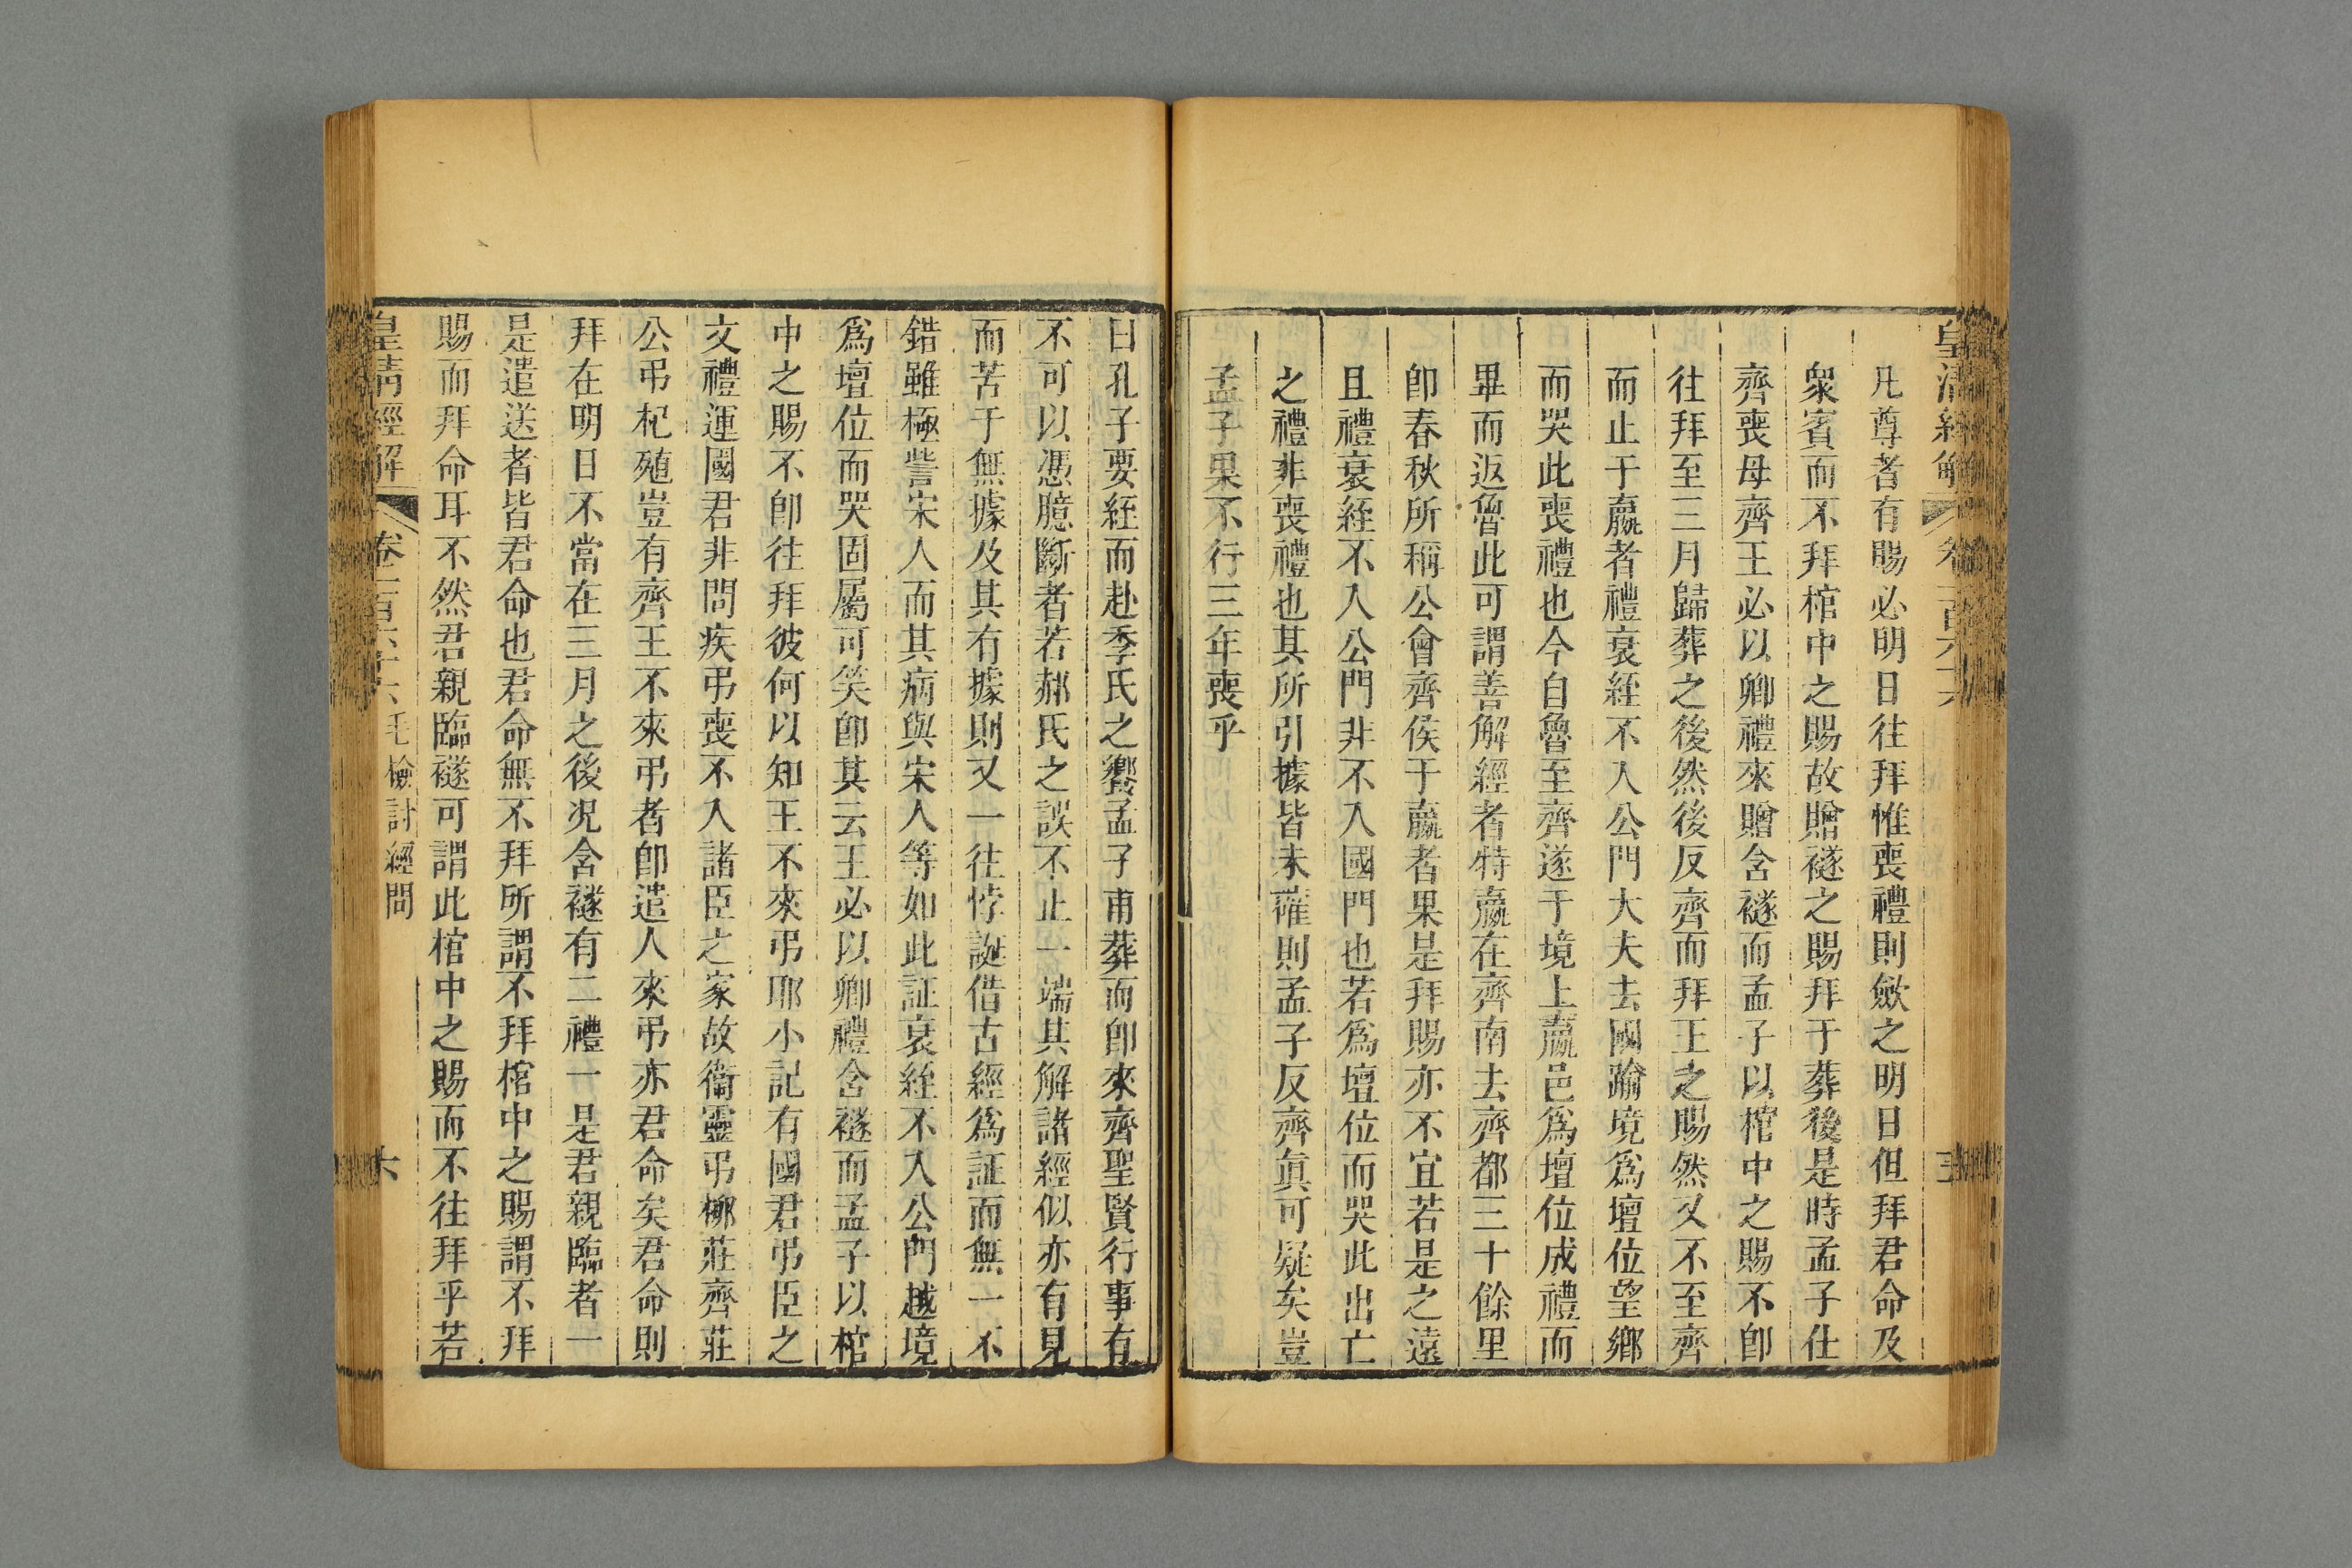 凡尊者有賜必明日往拜惟喪禮則斂之明日但拜君命及
衆賓而不拜棺中之賜故贈襚之賜拜于葬後是時孟子仕
齊喪母齊王必以卿禮來贈含襚而孟子以棺中之賜不卽
往拜至三月歸葬之後然後反齊而拜王之賜然又不至齊
而止于嬴者禮衰絰不入公門大夫去國踰境爲壇位望鄉
而哭此喪禮也今自魯至齊遂于境上嬴邑爲壇位成禮而
畢而返魯此可謂善解經者特嬴在齊南去齊都三十餘里
卽春秋所稱公會齊侯于嬴者果是拜賜亦不宜若是之遠
且禮衰絰不入公門非不入國門也若爲壇位而哭此出亡
之禮非喪禮也其所引據皆未確則孟子反齊眞可疑矣豈
孟子果不行三年喪乎
曰孔子要絰而赴季氏之饗孟子甫葬而卽來齊聖賢行事有
不可以憑臆斷者若郝氏之誤不止一端其解諸經似亦有見
而苦于無據及其有據則又一往悖誕借古經爲証而無一不
錯雖極訾宋人而其病與宋人等如此証衰絰不入公門越境
爲壇位而哭固屬可笑卽其云王必以卿禮含襚而孟子以棺
中之賜不卽往拜彼何以知王不來弔耶小記有國君弔臣之
文禮運國君非問疾弔喪不入諸臣之家故衞靈弔柳莊齊莊
公弔杞殖豈有齊王不來弔者卽遣人來弔亦君命矣君命則
拜在明日不當在三月之後况含襚有二禮一是君親臨者一
是遣送者皆君命也君命無不拜所謂不拜棺中之賜謂不拜
賜而拜命耳不然君親臨襚可謂此棺中之賜而不往拜乎若
皇清經解
卷一百六十六毛檢討經問
六